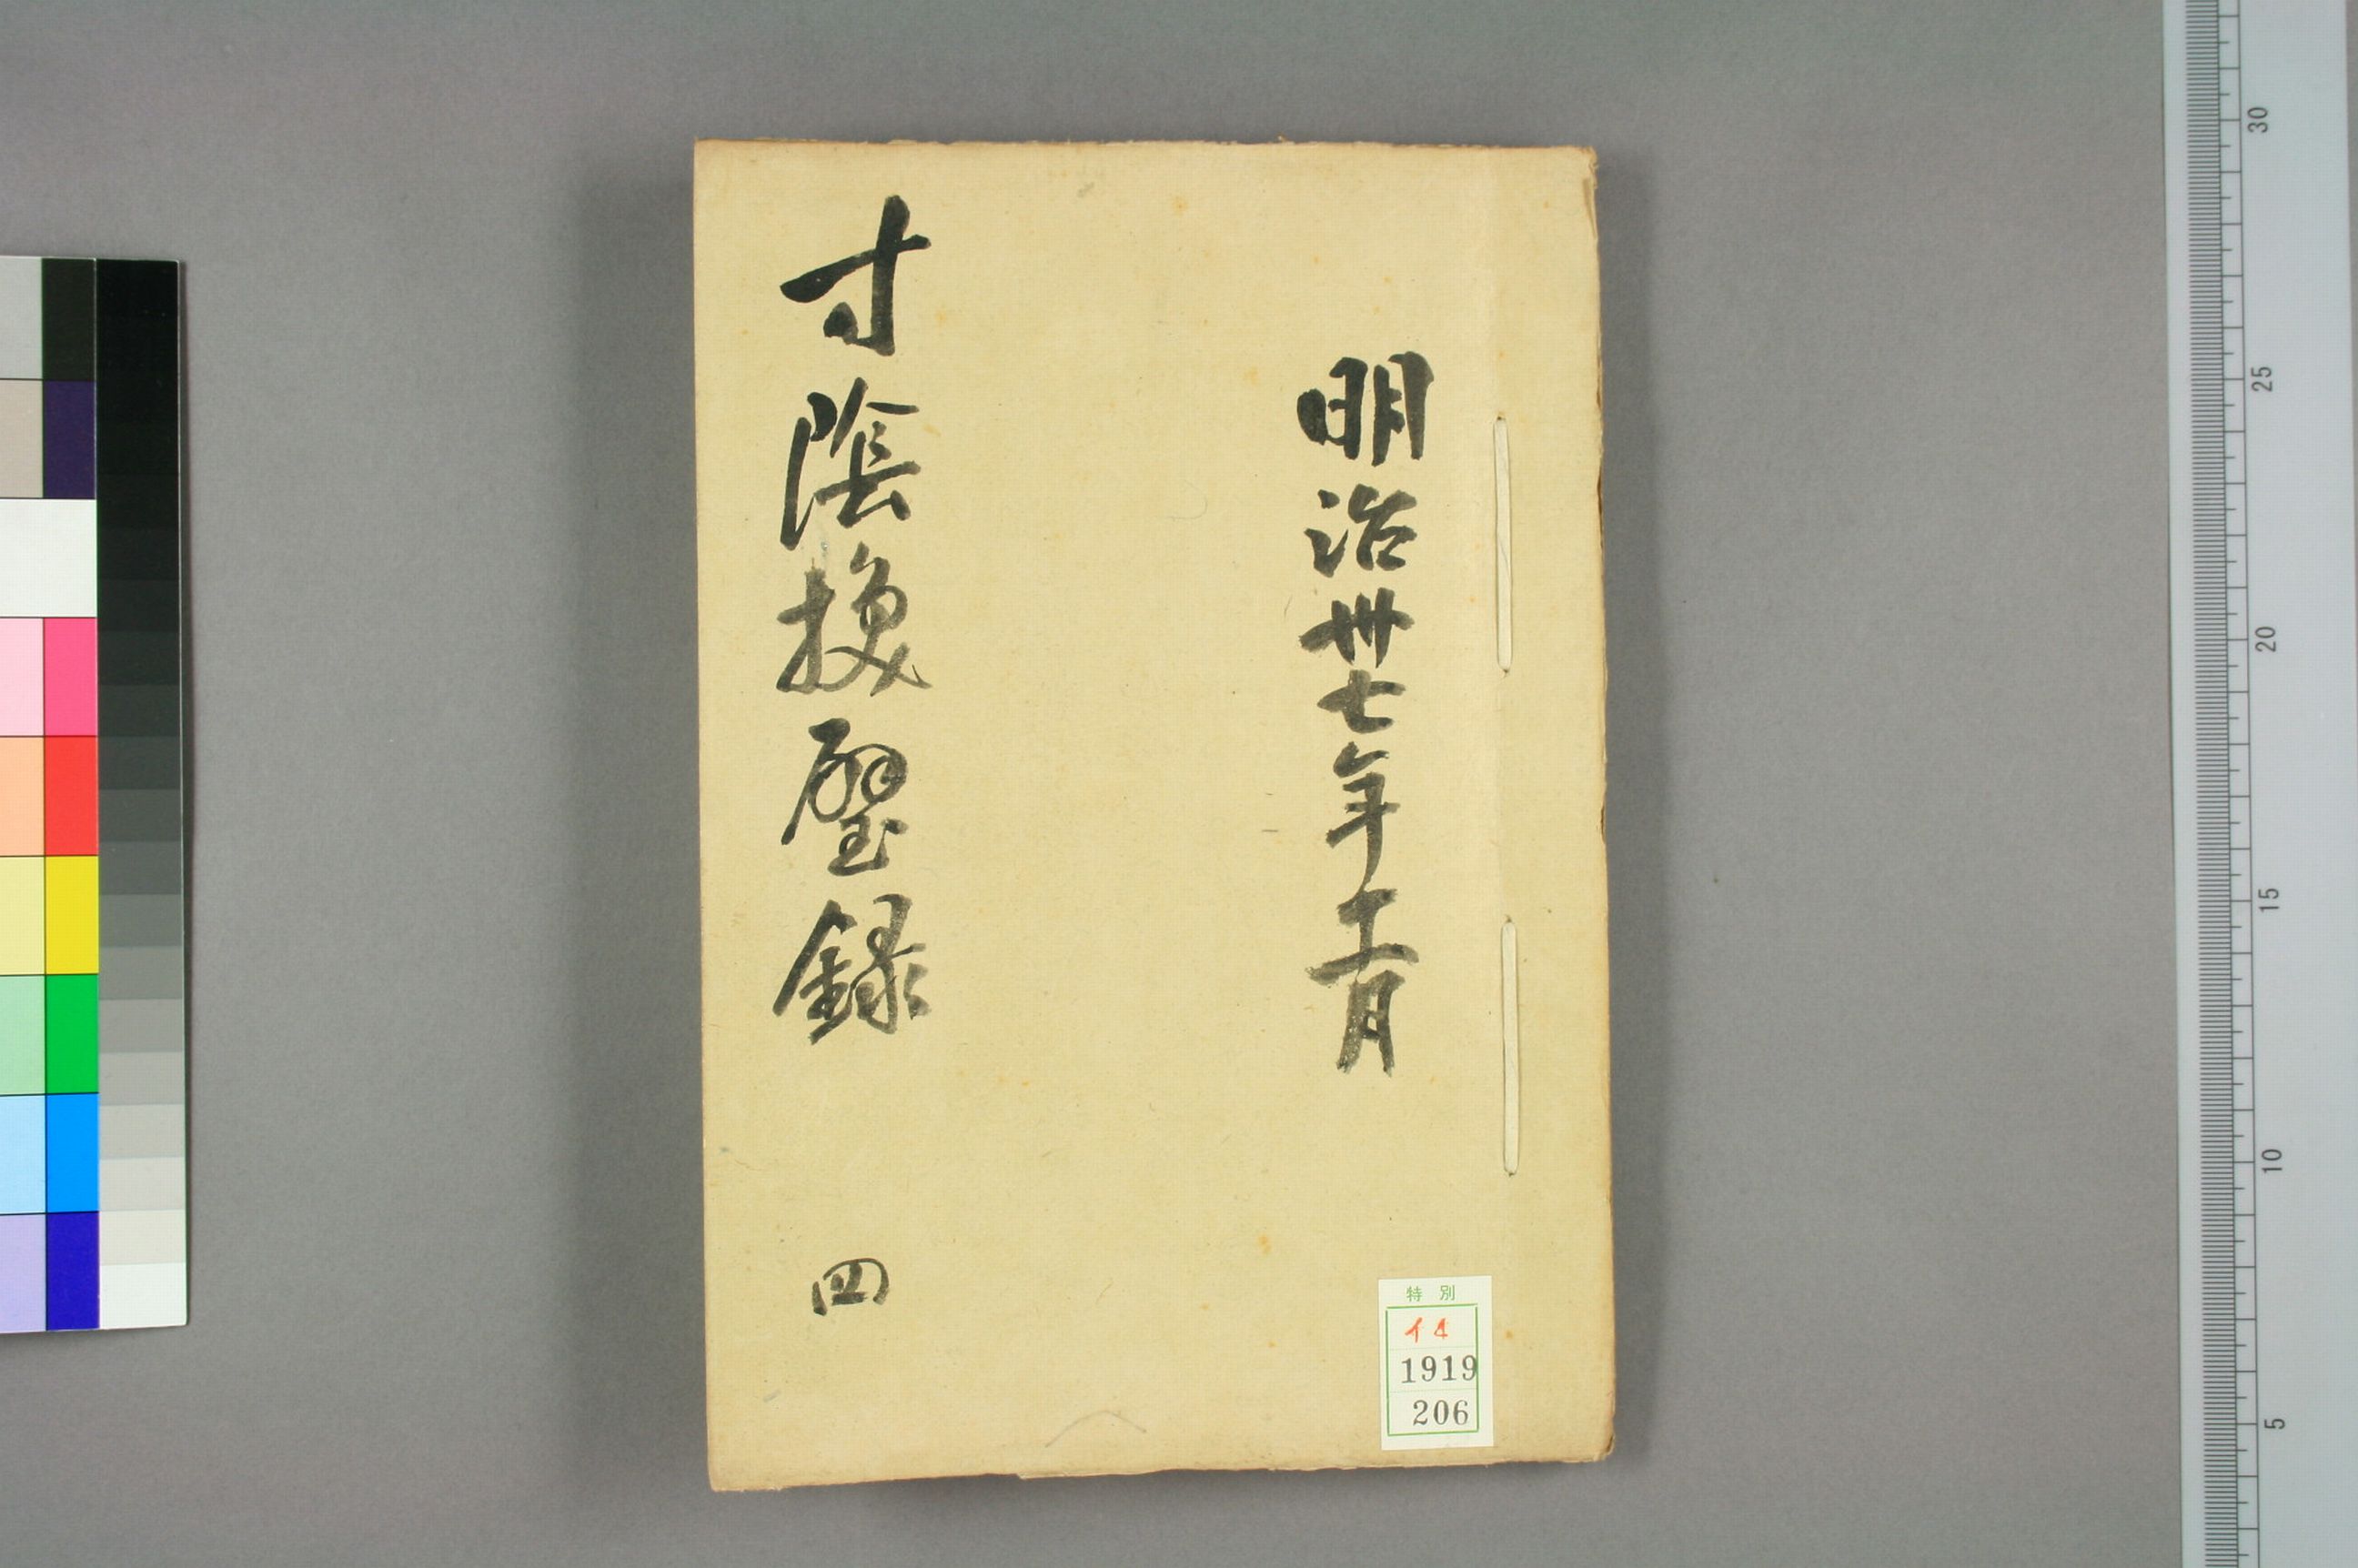 明治卅七年十二月
寸陰換璧録 四
特別
イ4
1919
206
30
25
20
15
10
5